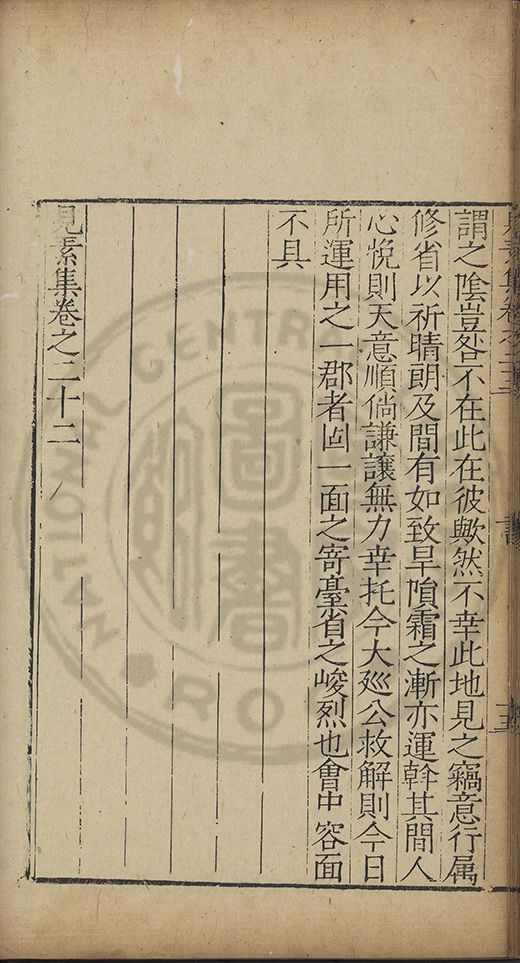 謂之陰豈咎不在此在彼歟然不幸此地見之竊意行属
修省以祈晴朗及間有如致旱隕霜之漸亦運斡其間人
心悅則天意順倘謙讓無力幸托今大廵公救解則今日
所運用之一郡者固一面之寄臺省之峻烈也會中容面
不具
見素集卷之二十二